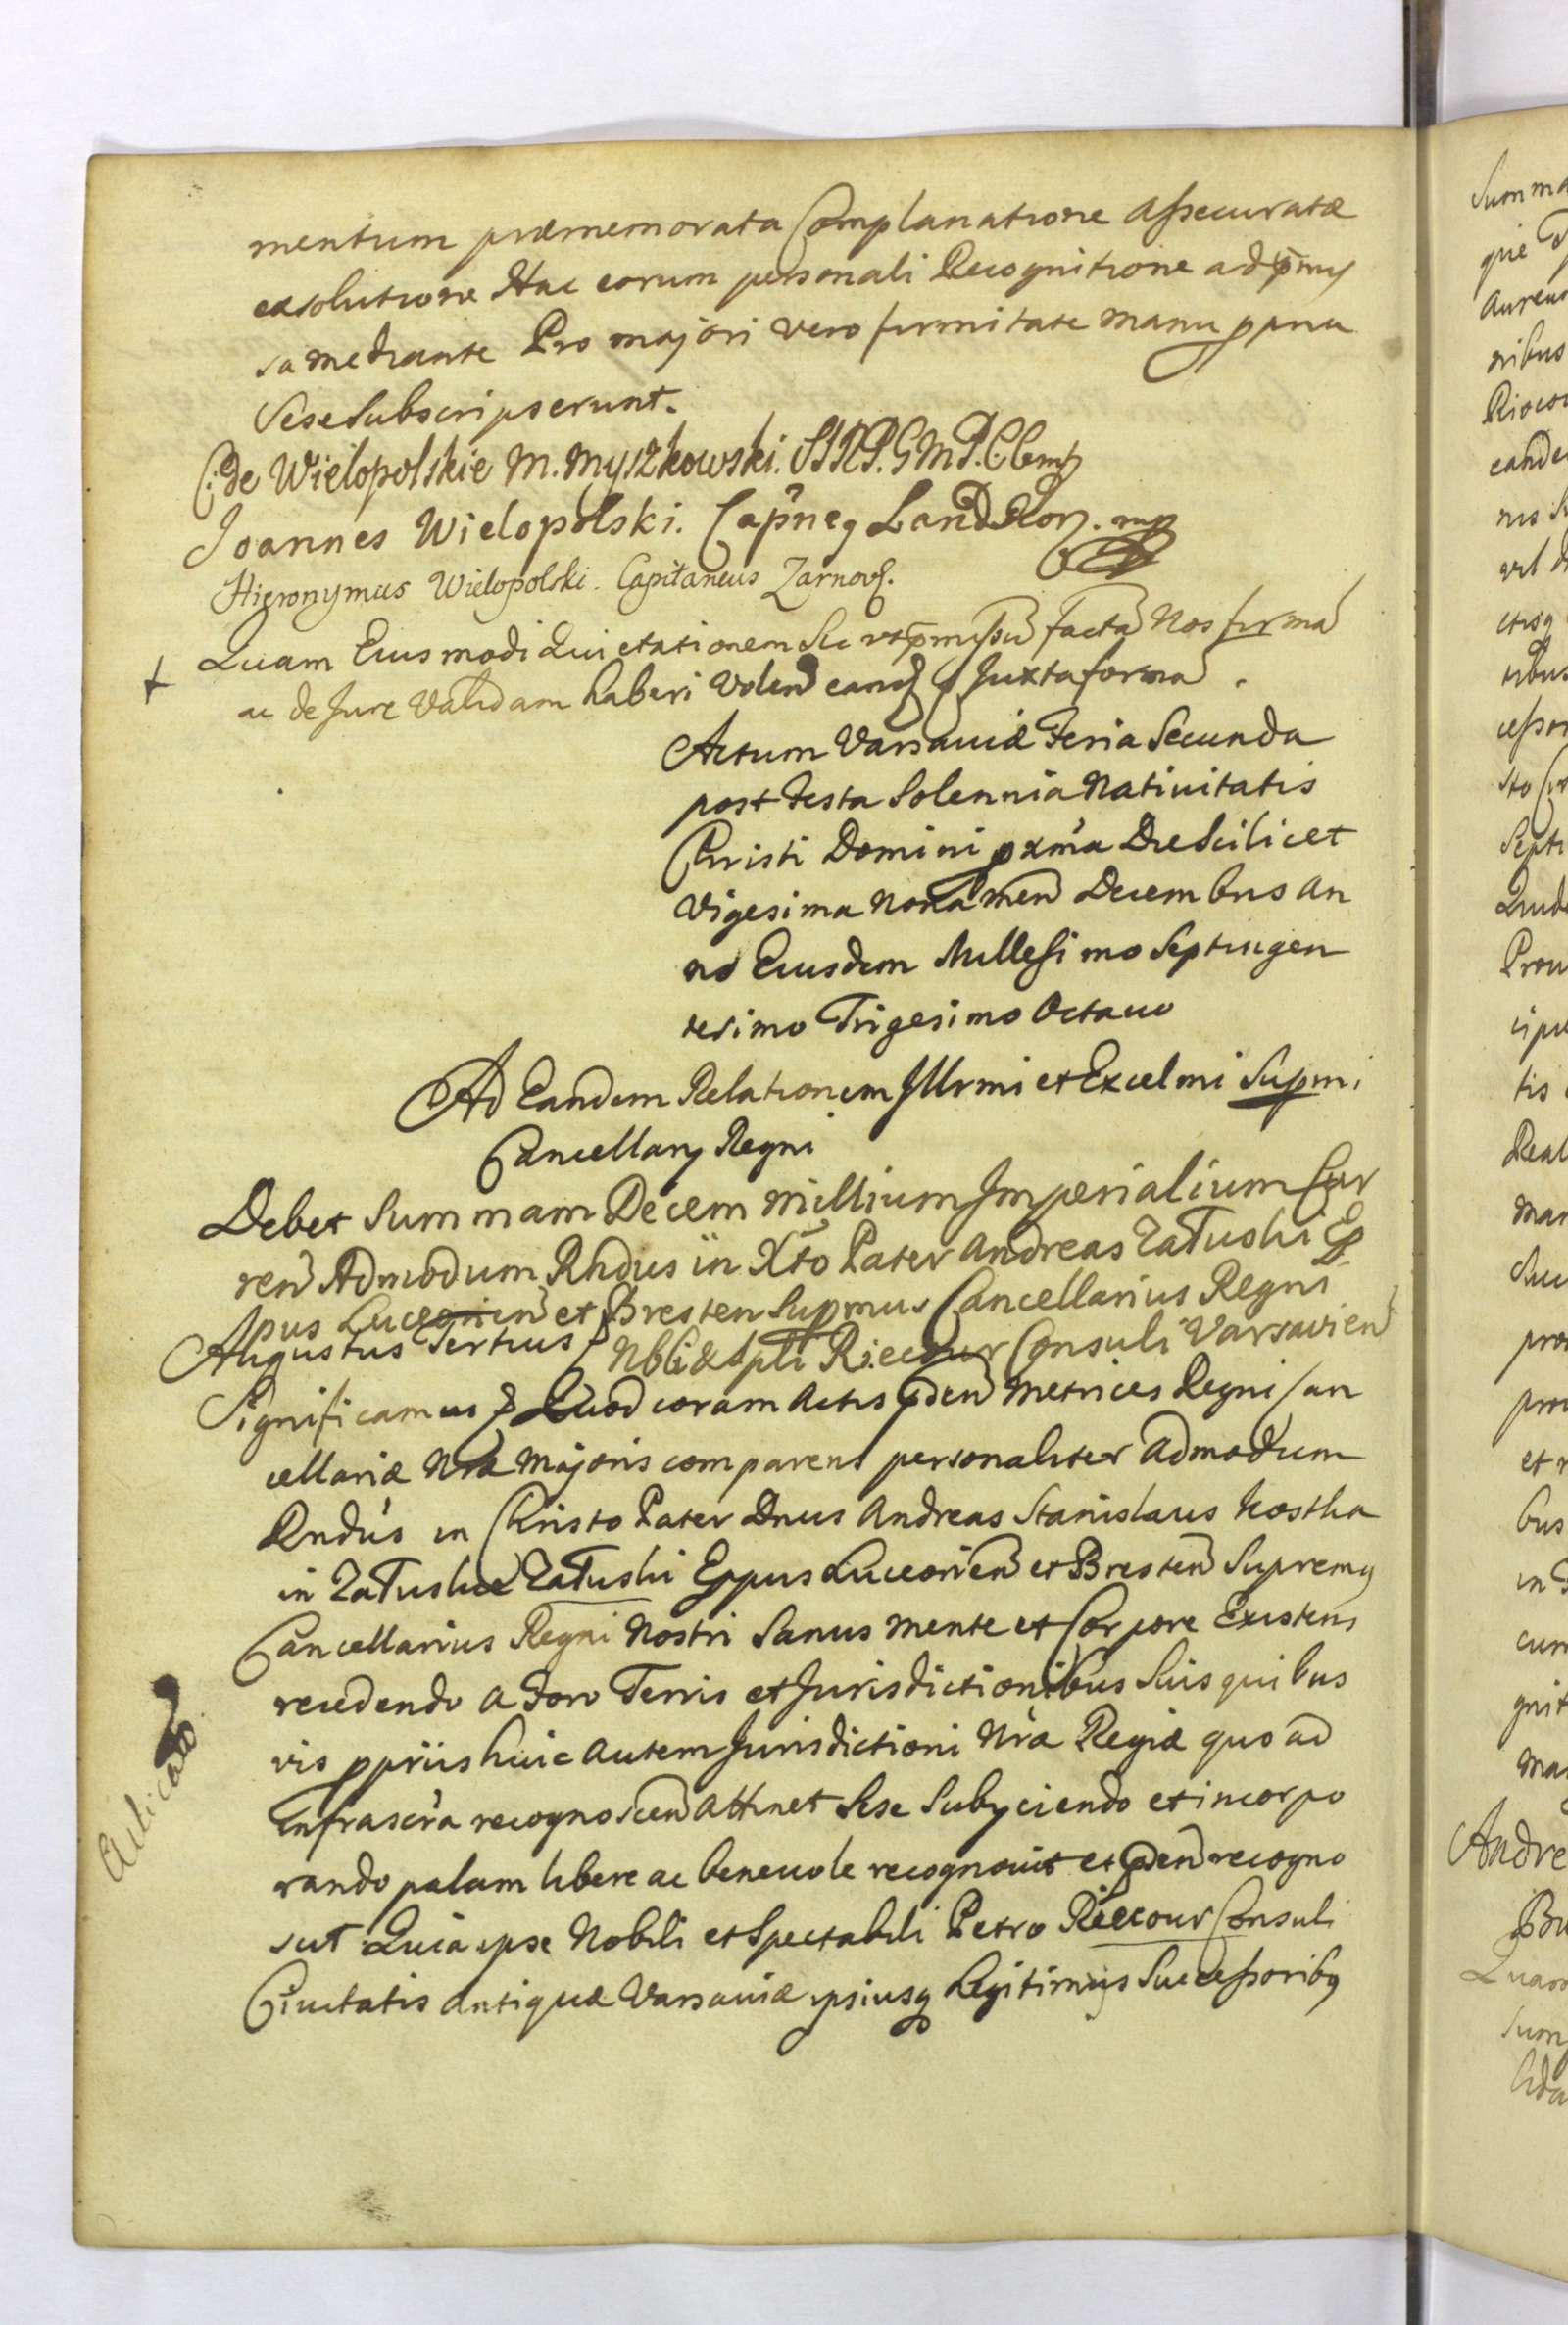 mentum præmemorata Complanatione assecuratæ
exsolutione Hac eorum personali Recognitione ad præmis
sa mediante Pro majori vero firmitate manu ppria
sese subscripserunt.
C. de Wielopolskie M. Myszkowski. S.I.R.P. G.M.P.
Joannes Wielopolski. Cap'neg Land Kor. mp
Hieronymus Wielopolski. Capitaneus Zarnov.
Quam Eiusmodi Quietationem Sic ut pmissu facta Nos firma
ac de Jure Validam haberi Volen eand Juxta forma.
Actum Varsaviæ Feria Secunda
post Festa Solennia Nativitatis
Christi Domini pxma Die Scilicet
Vigesima Nona Men Decembris an
no Eiusdem Millesimo Septingen
tesimo Trigesimo Octavo
Ad Eandem Relationem Illrmi et Excelmi Supmi
Cancellary Regni
Debet Summam Decem Millium Imperialium Cur
ren Admodum Rndus in Xto Pater Andreas Zatuski Ep
pus Luceorien et Bresten Supmus Cancellarius Regni
Augustus Tertius Nbli & Spli Riecour Consuli Varsavien
Significamus & Quod coram Actis pden Metrices Regni Can
cellariæ Nræ Majoris comparens personaliter Admodum
Rndus in Christo Pater Dnus Andreas Stanislaus Kostka
in Zatuskie Zatuski Eppus Luceorien et Bresten Supremg
Cancellarius Regni Nostri Sanus mente et Corpore Existens
recedendo a Foro Terris et Jurisdictionibus Suis quibus
vis ppriis huic autem Jurisdictioni Nræ Regiæ quo ad
Infrascra recognoscen attinet Sese Subyciendo et incorpo
rando palam libere ac benevole recognovit et pden recogno
scit Quia ipse Nobili et Spectabili Petro Riecour Consuli
Civitatis Antiquæ Varsaviæ ipsiusq Legitimis Successoribg